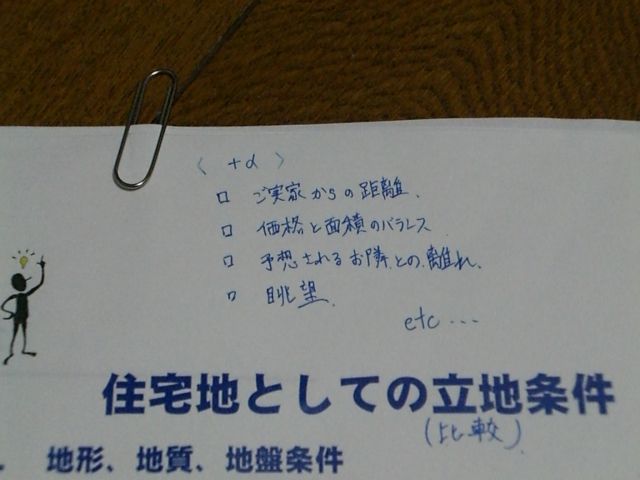 〈 +α 〉
□ ご実家からの距離.
□ 価格と面積のバランス
□ 予想されるお隣との離れ.
□ 眺望.
etc…
住宅地としての立地条件
(比較)
. 地形、地質、地盤条件